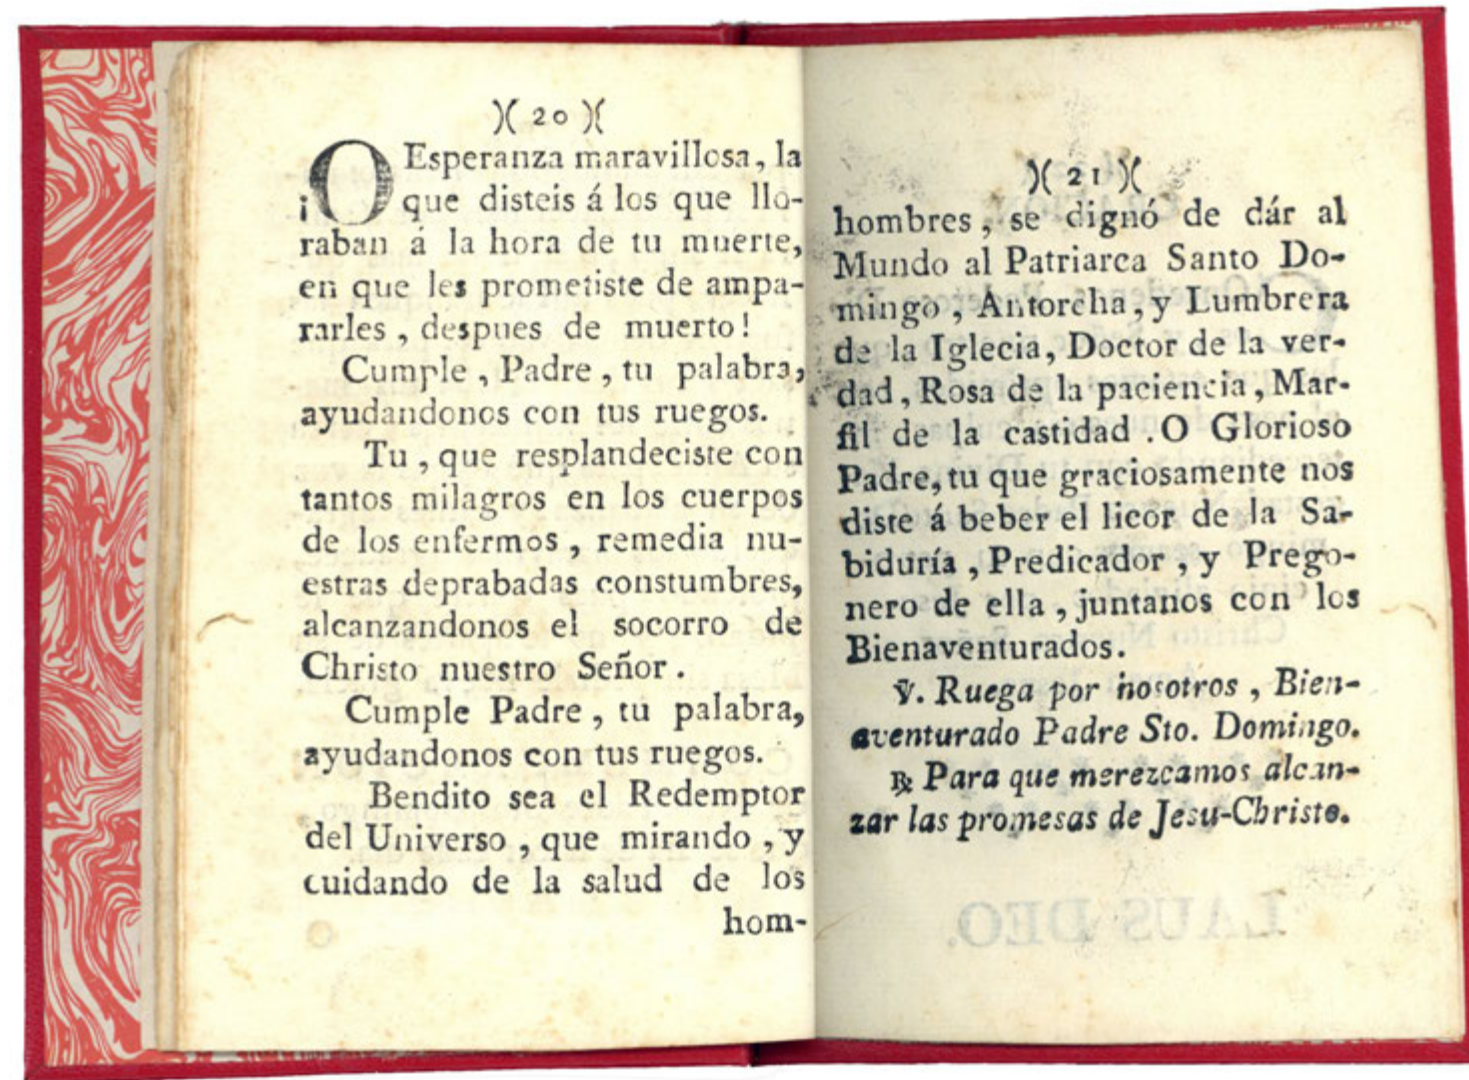 )( 20 )(
¡O Esperanza maravillosa, la
que disteis á los que llo-
raban á la hora de tu muerte,
en que les prometiste de ampa-
rarles, despues de muerto!
Cumple, Padre, tu palabra,
ayudandonos con tus ruegos.
Tu, que resplandeciste con
tantos milagros en los cuerpos
de los enfermos, remedia nu-
estras deprabadas constumbres,
alcanzandonos el socorro de
Christo nuestro Señor.
Cumple Padre, tu palabra,
ayudandonos con tus ruegos.
Bendito sea el Redemptor
del Universo, que mirando, y
cuidando de la salud de los
hom-
)( 21 )(
hombres, se dignó de dár al
Mundo al Patriarca Santo Do-
mingo, Antorcha, y Lumbrera
de la Iglecia, Doctor de la ver-
dad, Rosa de la paciencia, Mar-
fil de la castidad. O Glorioso
Padre, tu que graciosamente nos
diste á beber el licor de la Sa-
biduría, Predicador, y Prego-
nero de ella, juntanos con los
Bienaventurados.
℣. Ruega por nosotros, Bien-
aventurado Padre Sto. Domingo.
℟ Para que merezcamos alcan-
zar las promesas de Jesu-Christo.
LAUS DEO.